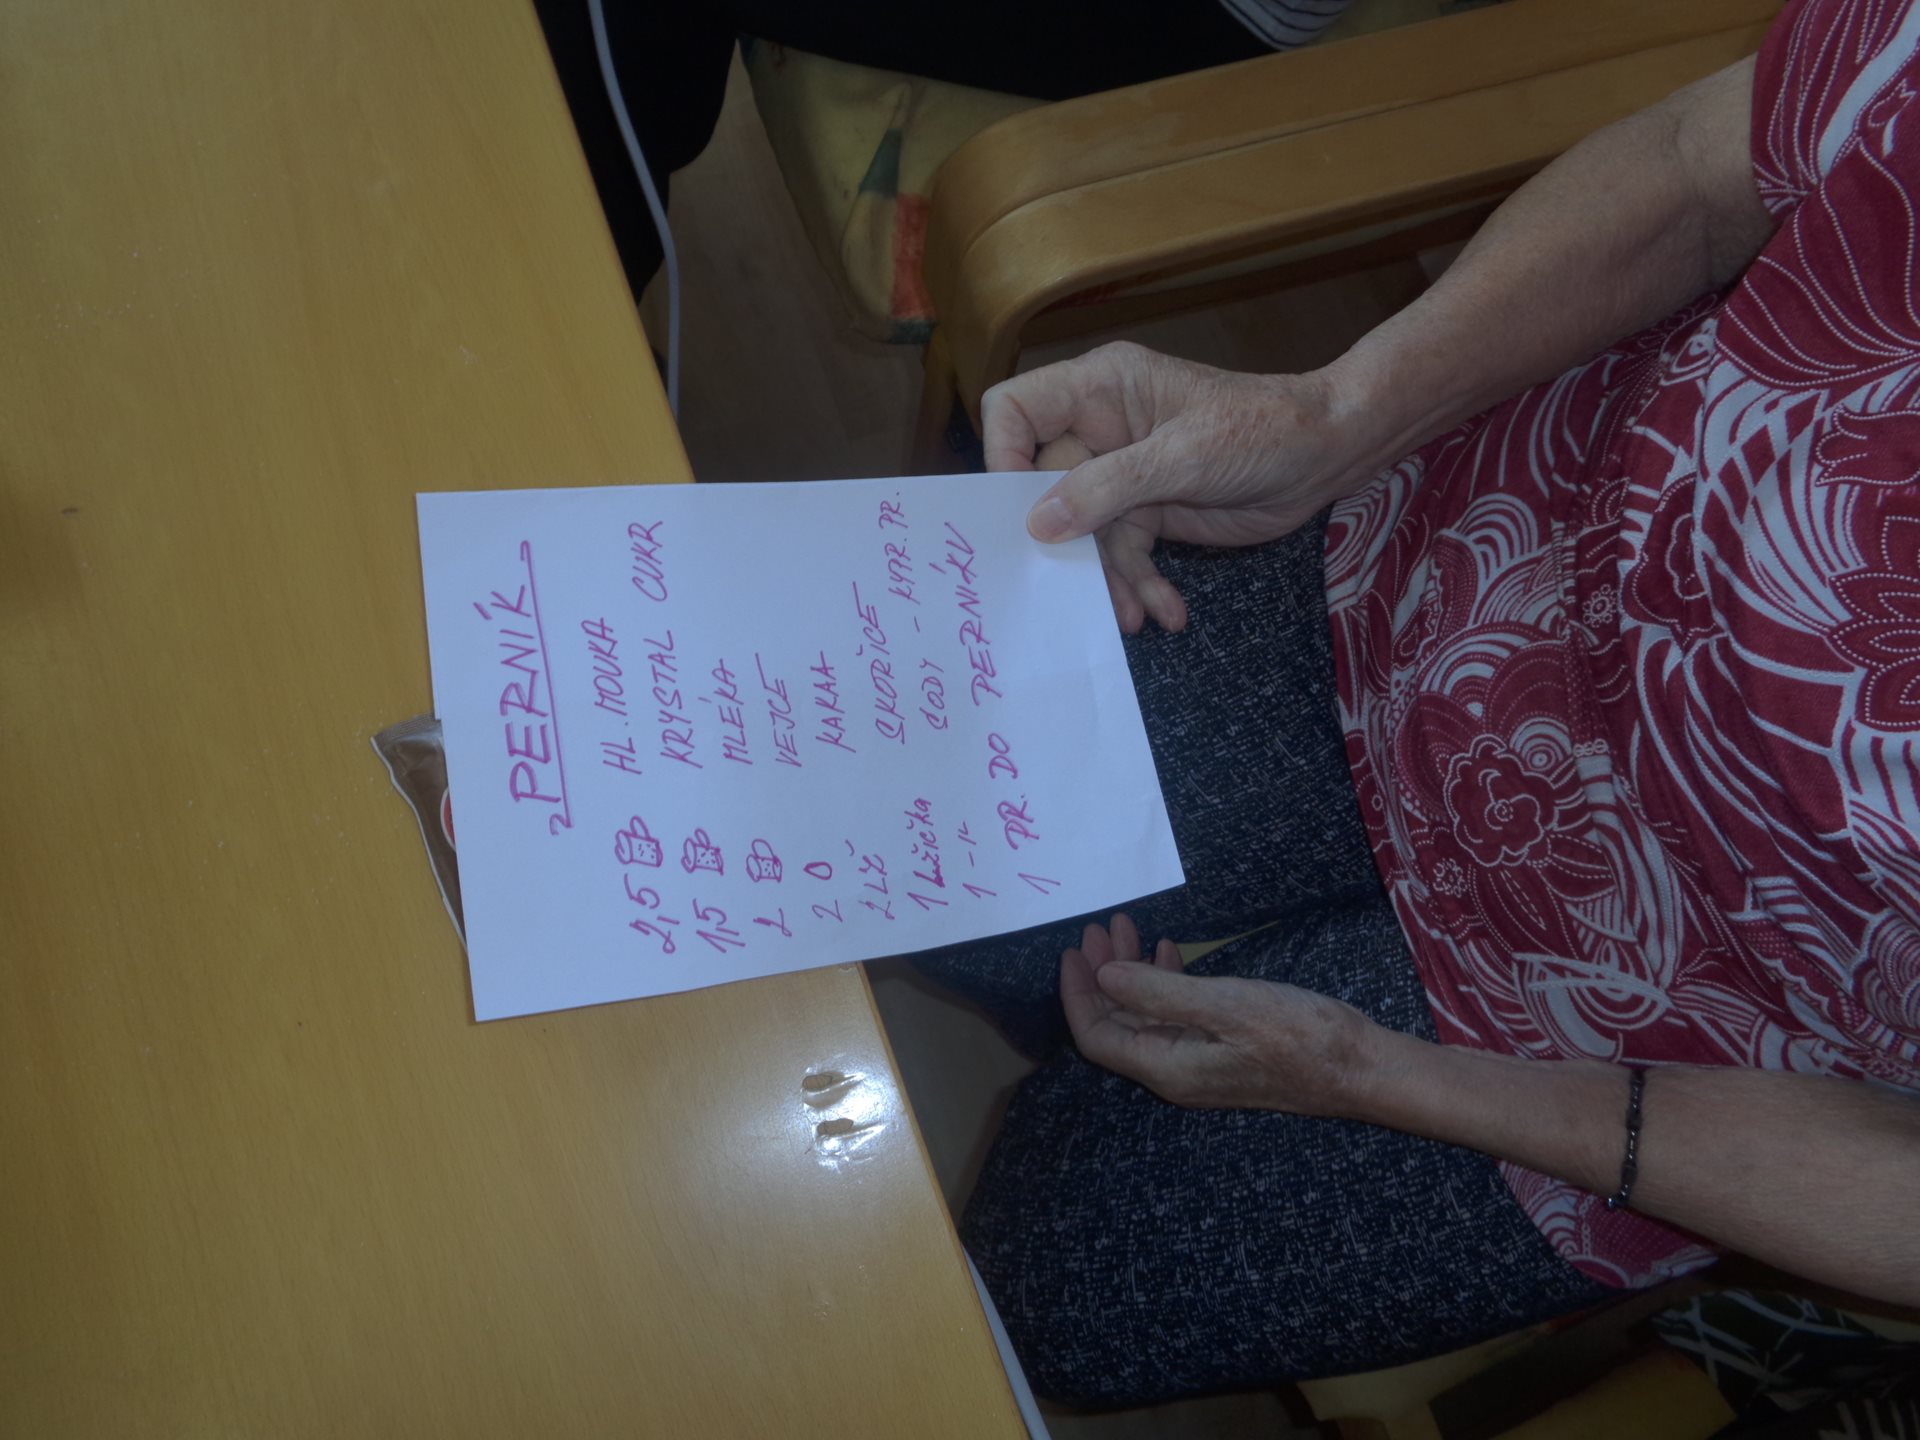 „PERNÍK"
2,5 HL. MOUKA
1,5 KRYSTAL CUKR
2 MLÉKA
2 VEJCE
2 LŽ KAKAA
1 lžička SKOŘICE
1 -"- SODY - KYPR. PR.
1 PR. DO PERNÍKU